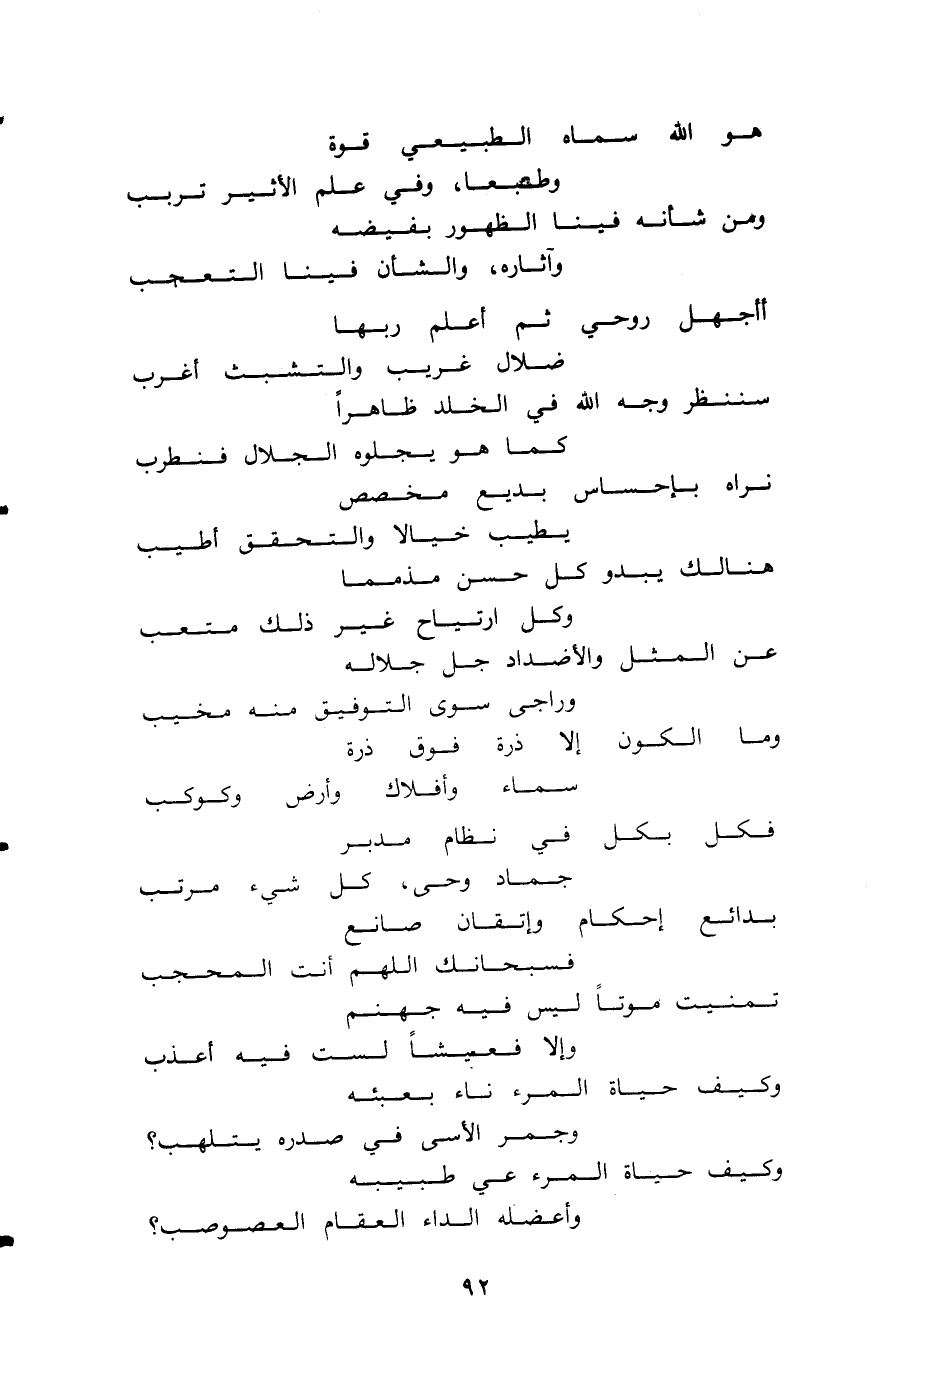 هو الله سماه الطبيعي قوة
وطبعا، وفي علم الأثير تربب
ومن شأنه فينا الظهور بفيضه
وآثاره، والشأن فينا التعجب
أأجهل روحي ثم أعلم ربها
ضلال غريب والتشبث أغرب
سننظر وجه الله في الخلد ظاهراً
كما هو يجلوه الجلال فنطرب
نراه بإحساس بديع مخصص
يطيب خيالا والتحقق أطيب
هنالك يبدو كل حسن مذمما
وكل ارتياح غير ذلك متعب
عن المثل والأضداد جل جلاله
وراجى سوى التوفيق منه مخيب
وما الكون إلا ذرة فوق ذرة
سماء وأفلاك وأرض وكوكب
فكل بكل في نظام مدبر
جماد وحى، كل شيء مرتب
بدائع إحكام وإتقان صانع
فسبحانك اللهم أنت المحجب
تمنيت موتاً ليس فيه جهنم
وإلا فعيشاً لست فيه أعذب
وكيف حياة المرء ناء بعبئه
وجمر الأسى في صدره يتلهب؟
وكيف حياة المرء عي طبيبه
وأعضله الداء العقام العصوصب؟
٩٢